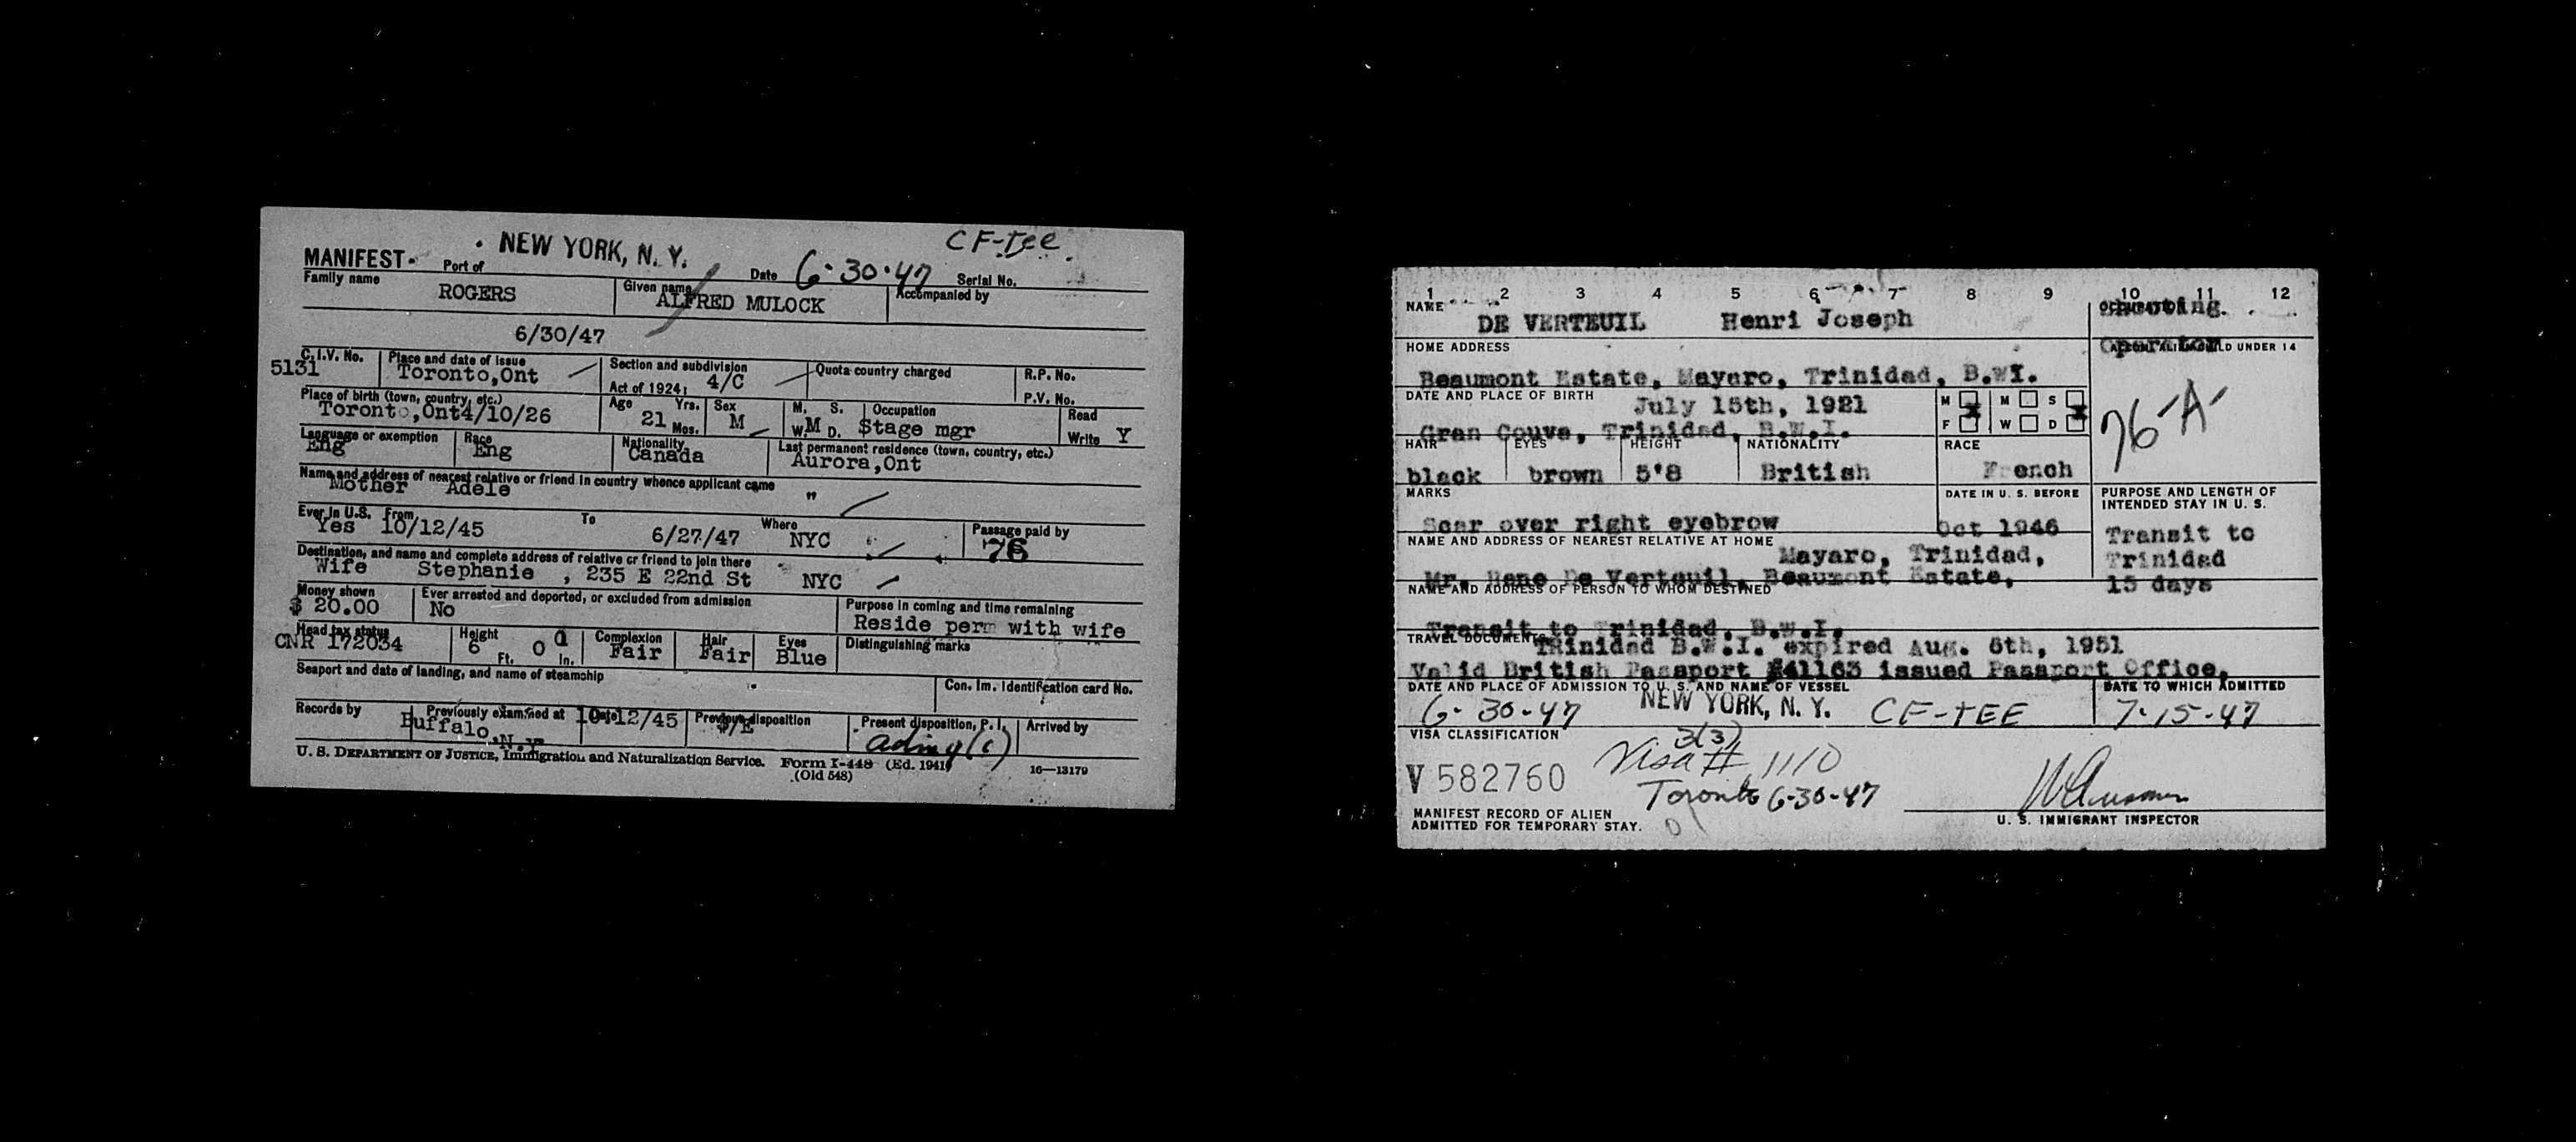 CF-Tee
MANIFEST Port of NEW YORK, N. Y. Date 6-30-47 Serial No.
Family name ROGERS Given name ALFRED MULOCK Accompanied by
6/30/47
C.I.V. No. 5131 Place and date of issue Toronto,Ont Section and subdivision Act of 1924: 4/C Quota country charged R.P. No. P.V. No.
Place of birth (town, country, etc.) Toronto,Ont4/10/26 Age 21 Yrs. Mos. Sex M M. S. W. M D. Occupation Stage mgr Read Write Y
Language or exemption Eng Race Eng Nationality Canada Last permanent residence (town, country, etc.) Aurora,Ont
Name and address of nearest relative or friend in country whence applicant came
Mother Adele "
Ever in U.S. Yes From 10/12/45 To 6/27/47 Where NYC Passage paid by 76
Destination, and name and complete address of relative or friend to join there
Wife Stephanie , 235 E 22nd St NYC
Money shown $ 20.00 Ever arrested and deported, or excluded from admission No Purpose in coming and time remaining Reside perm with wife
Head tax status CNR 172034 Height 6 Ft. 0 In. Complexion Fair Hair Fair Eyes Blue Distinguishing marks
Seaport and date of landing, and name of steamship Con. Im. Identification card No.
Records by Previously examined at Buffalo,N.Y. Date 10/12/45 Previous disposition P/E Present disposition, P. I. Arrived by
U. S. DEPARTMENT OF JUSTICE, Immigration and Naturalization Service. Form I-448 (Ed. 1941) 16—13179
(Old 548)
1 2 3 4 5 6 7 8 9 10 11 12
NAME DE VERTEUIL Henri Joseph OCCUPATION
Operator
HOME ADDRESS UNDER 14
Beaumont Estate, Mayaro, Trinidad, B.WI.
DATE AND PLACE OF BIRTH July 15th, 1921 M F M S W D
Gran Couva, Trinidad, B.W.I. 76-A-
HAIR EYES HEIGHT NATIONALITY RACE
black brown 5'8 British French
MARKS DATE IN U. S. BEFORE PURPOSE AND LENGTH OF INTENDED STAY IN U. S.
Scar over right eyebrow Oct 1946 Transit to
NAME AND ADDRESS OF NEAREST RELATIVE AT HOME
Mayaro, Trinidad, Trinidad
Mr. Rene De Verteuil, Beaumont Estate, 15 days
NAME AND ADDRESS OF PERSON TO WHOM DESTINED
Transit to Trinidad, B.W.I.
TRAVEL DOCUMENTS TRinidad B.W.I. expired Aug. 6th, 1951
Valid British Passport #41163 issued Passport Office,
DATE AND PLACE OF ADMISSION TO U. S. AND NAME OF VESSEL DATE TO WHICH ADMITTED
6-30-47 NEW YORK, N. Y. CF-TEE 7-15-47
VISA CLASSIFICATION 3(3)
V 582760 Visa # 1110
Toronto 6-30-47
MANIFEST RECORD OF ALIEN
ADMITTED FOR TEMPORARY STAY.
U. S. IMMIGRANT INSPECTOR